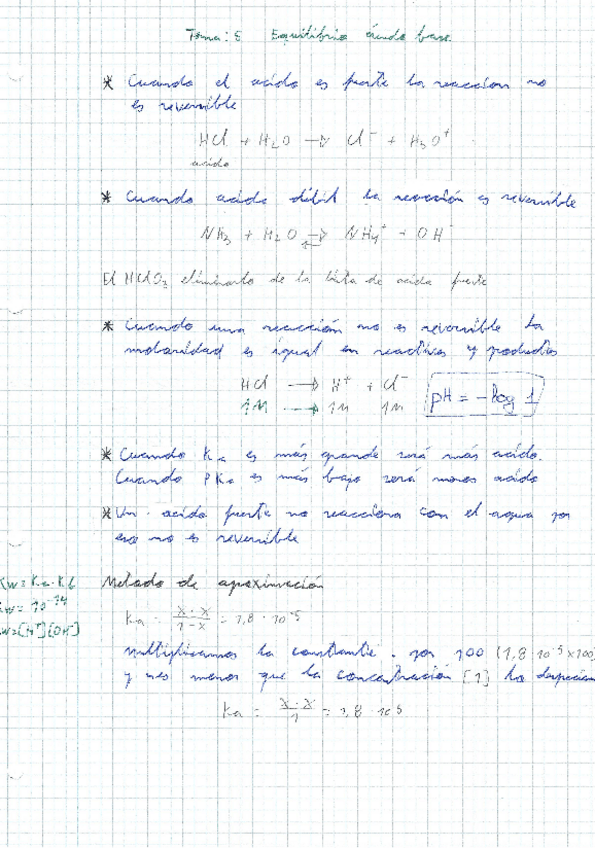 Tema: 8 Equilibrio ácido base
* Cuando el acido es fuerte la reaccion no
es reversible
HCl + H2O → Cl⁻ + H3O⁺
acido
* Cuando acido débil la reacción es reversible
NH3 + H2O ⇌ NH4⁺ + OH⁻
El HClO3 eliminarlo de la lista de acido fuerte
* Cuando una reacción no es reversible la
molaridad es igual en reactivos y productos
HCl → H⁺ + Cl⁻
1M → 1M 1M
pH = -log 1
* Cuando Ka es más grande será más acido.
Cuando PKa es más bajo será menos acido
* Un acido fuerte no reacciona con el agua por
eso no es reversible
Kw = Ka · Kb
Kw = 10⁻¹⁴
Kw = [H⁺][OH⁻]
Metodo de aproximación
Ka = x · x / 1 - x = 1,8 · 10⁻⁵
multiplicamos la constante por 100 (1,8 · 10⁻⁵ x 100)
y es menos que la concentración [1] lo
Ka = x · x / 1 = 1,8 · 10⁻⁵